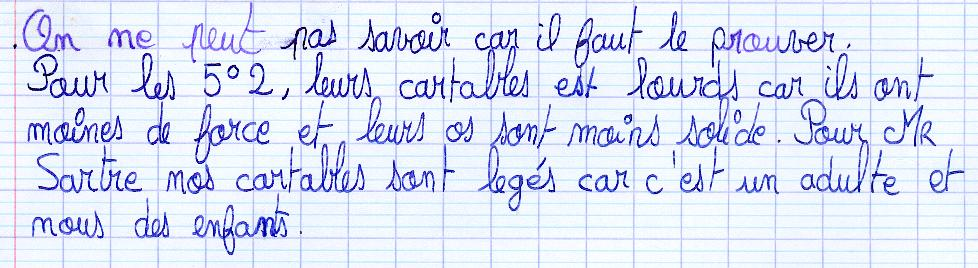 . On ne peut pas savoir car il faut le prouver.
Pour les 5°2, leurs cartables est lourds car ils ont
moines de force et leurs os sont moins solide. Pour Mr
Sartre nos cartables sont legés car c'est un adulte et
nous des enfants.